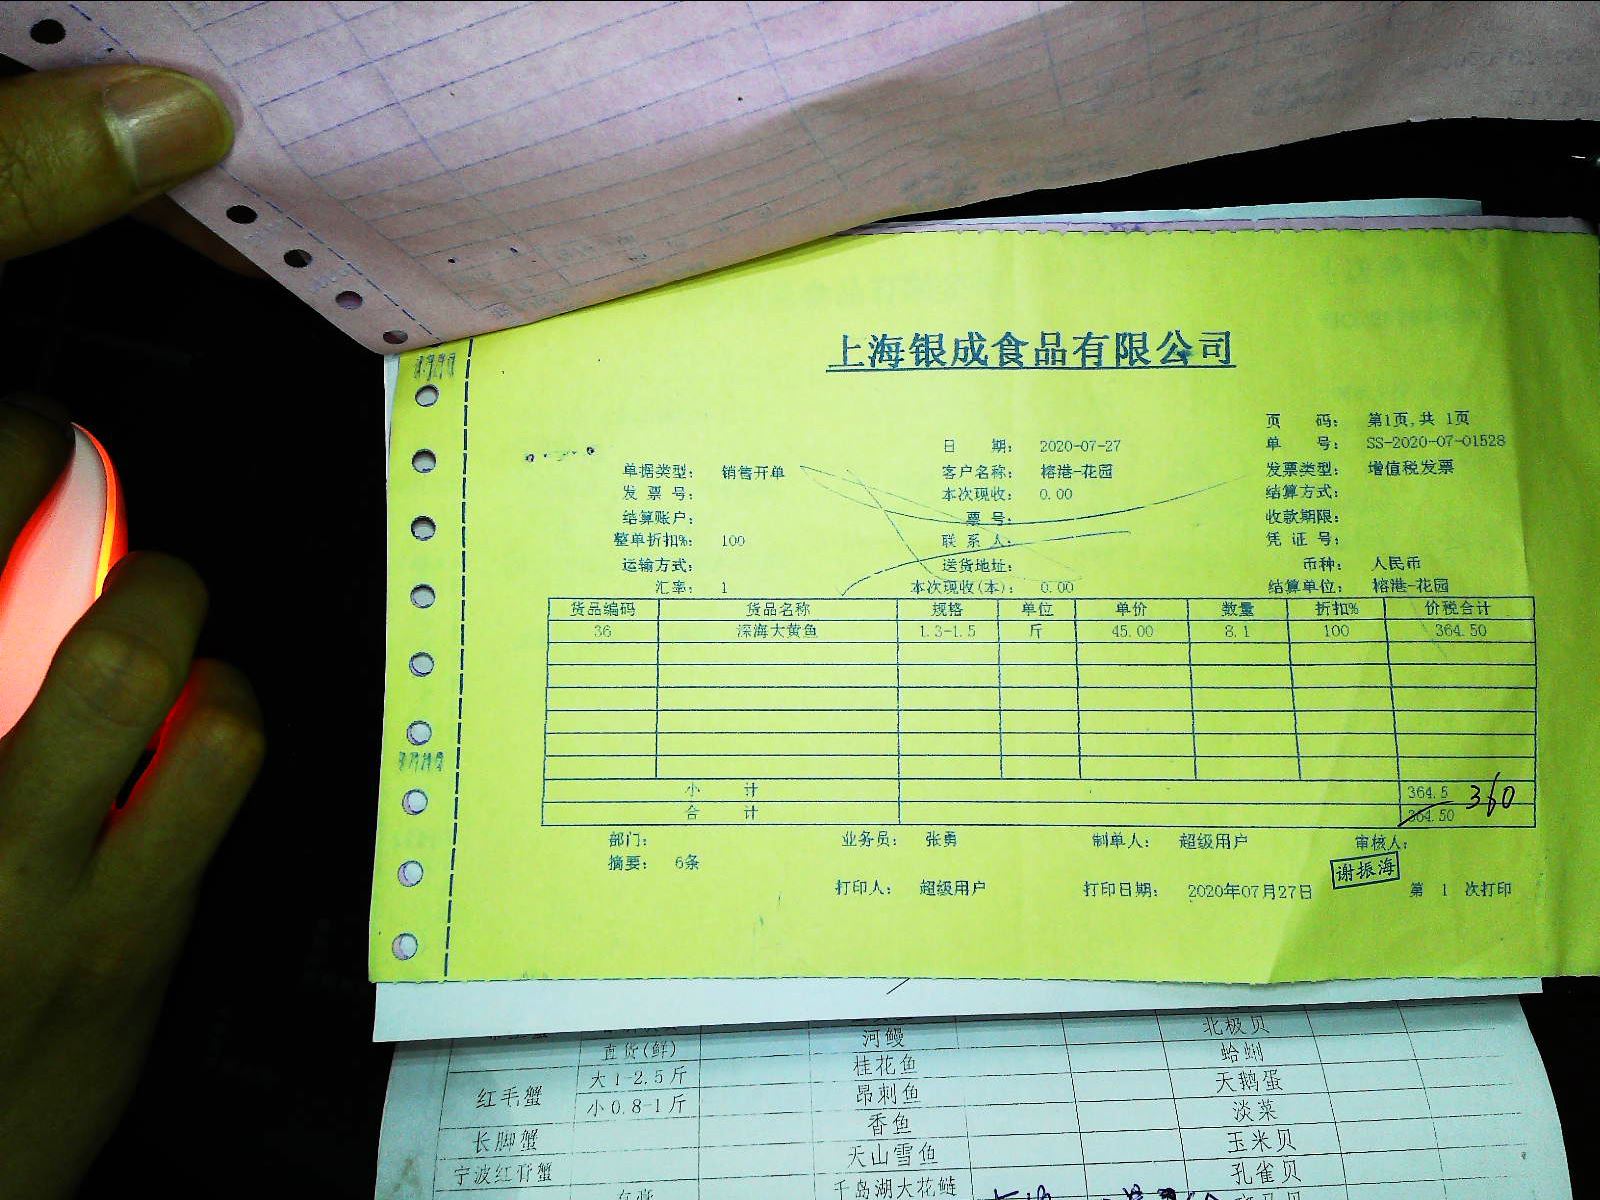 上海银成食品有限公司
页 码: 第1页,共 1页
日 期: 2020-07-27 单 号: SS-2020-07-01528
单据类型: 销售开单 客户名称: 榕港-花园 发票类型: 增值税发票
发 票 号: 本次现收: 0.00 结算方式:
结算账户: 票 号: 收款期限:
整单折扣%: 100 联 系 人: 凭 证 号:
运输方式: 送货地址: 币种: 人民币
汇率: 1 本次现收(本): 0.00 结算单位: 榕港-花园
货品编码 货品名称 规格 单位 单价 数量 折扣% 价税合计
36 深海大黄鱼 1.3-1.5 斤 45.00 8.1 100 364.50
小 计 364.5 360
合 计 364.50
部门: 业务员: 张勇 制单人: 超级用户 审核人:
摘要: 6条 谢振海
打印人: 超级用户 打印日期: 2020年07月27日 第 1 次打印
河鳗 北极贝
直货(鲜) 桂花鱼 蛤蜊
红毛蟹 大1-2.5斤 昂刺鱼 天鹅蛋
小0.8-1斤 香鱼 淡菜
长脚蟹 天山雪鱼 玉米贝
宁波红膏蟹 千岛湖大花鲢 孔雀贝